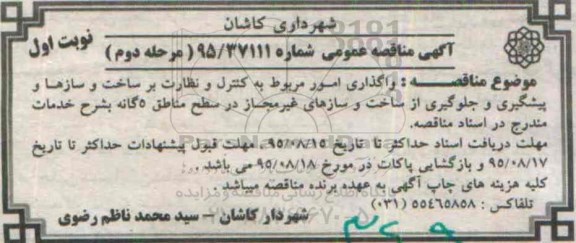 شهرداری کاشان
نوبت اول
آگهی مناقصه عمومی شماره ۹۵/۳۷۱۱۱ (مرحله دوم)
موضوع مناقصه : واگذاری امور مربوط به کنترل و نظارت بر ساخت و سازها و
پیشگیری و جلوگیری از ساخت و سازهای غیرمجاز در سطح مناطق ۵گانه بشرح خدمات
مندرج در اسناد مناقصه.
مهلت دریافت اسناد حداکثر تا تاریخ ۹۵/۰۸/۱۵، مهلت قبول پیشنهادات حداکثر تا تاریخ
۹۵/۰۸/۱۷ و بازگشایی پاکات در مورخ ۹۵/۰۸/۱۸ می باشد .
کلیه هزینه های چاپ آگهی به عهده برنده مناقصه میباشد .
تلفاکس : ۵۵۴۶۵۸۵۸ (۰۳۱)
شهردار کاشان – سید محمد ناظم رضوی